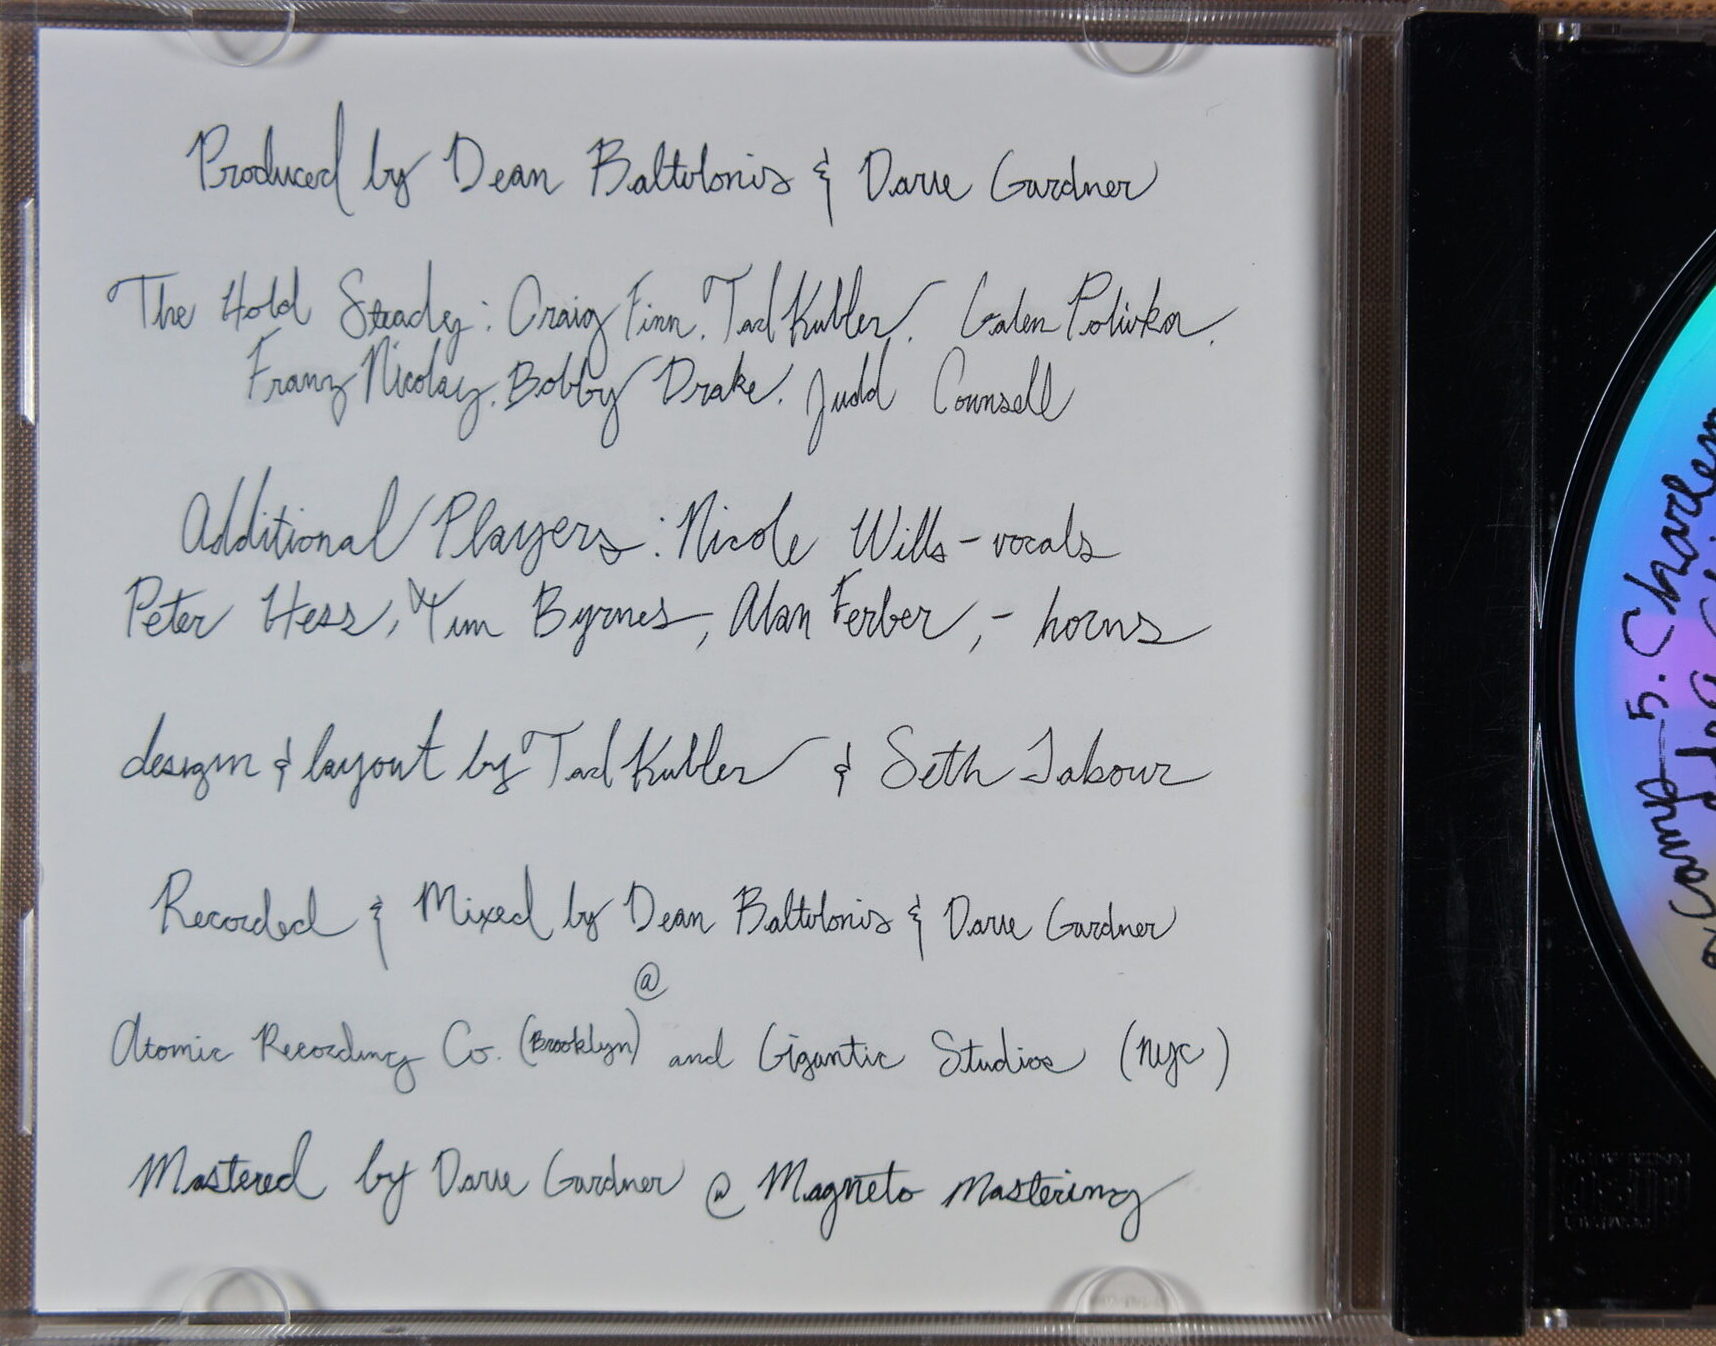 Produced by Dean Baltulonis & Dave Gardner
The Hold Steady: Craig Finn. Tad Kubler. Galen Polivka.
Franz Nicolay. Bobby Drake. Judd Counsell
Additional Players: Nicole Wills - vocals
Peter Hess, Tim Byrnes, Alan Ferber, - horns
design & layout by Tad Kubler & Seth Jabour
Recorded & Mixed by Dean Baltulonis & Dave Gardner
@
Atomic Recording Co. (Brooklyn) and Gigantic Studios (NYC)
Mastered by Dave Gardner @ Magneto Mastering
Camp 5. Charlem